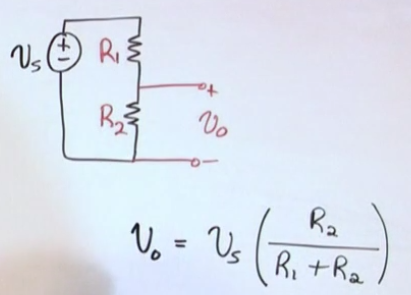 +
−
Vs
R₁
+
R₂
Vo
−
Vo = Vs ( R₂ / R₁ + R₂ )